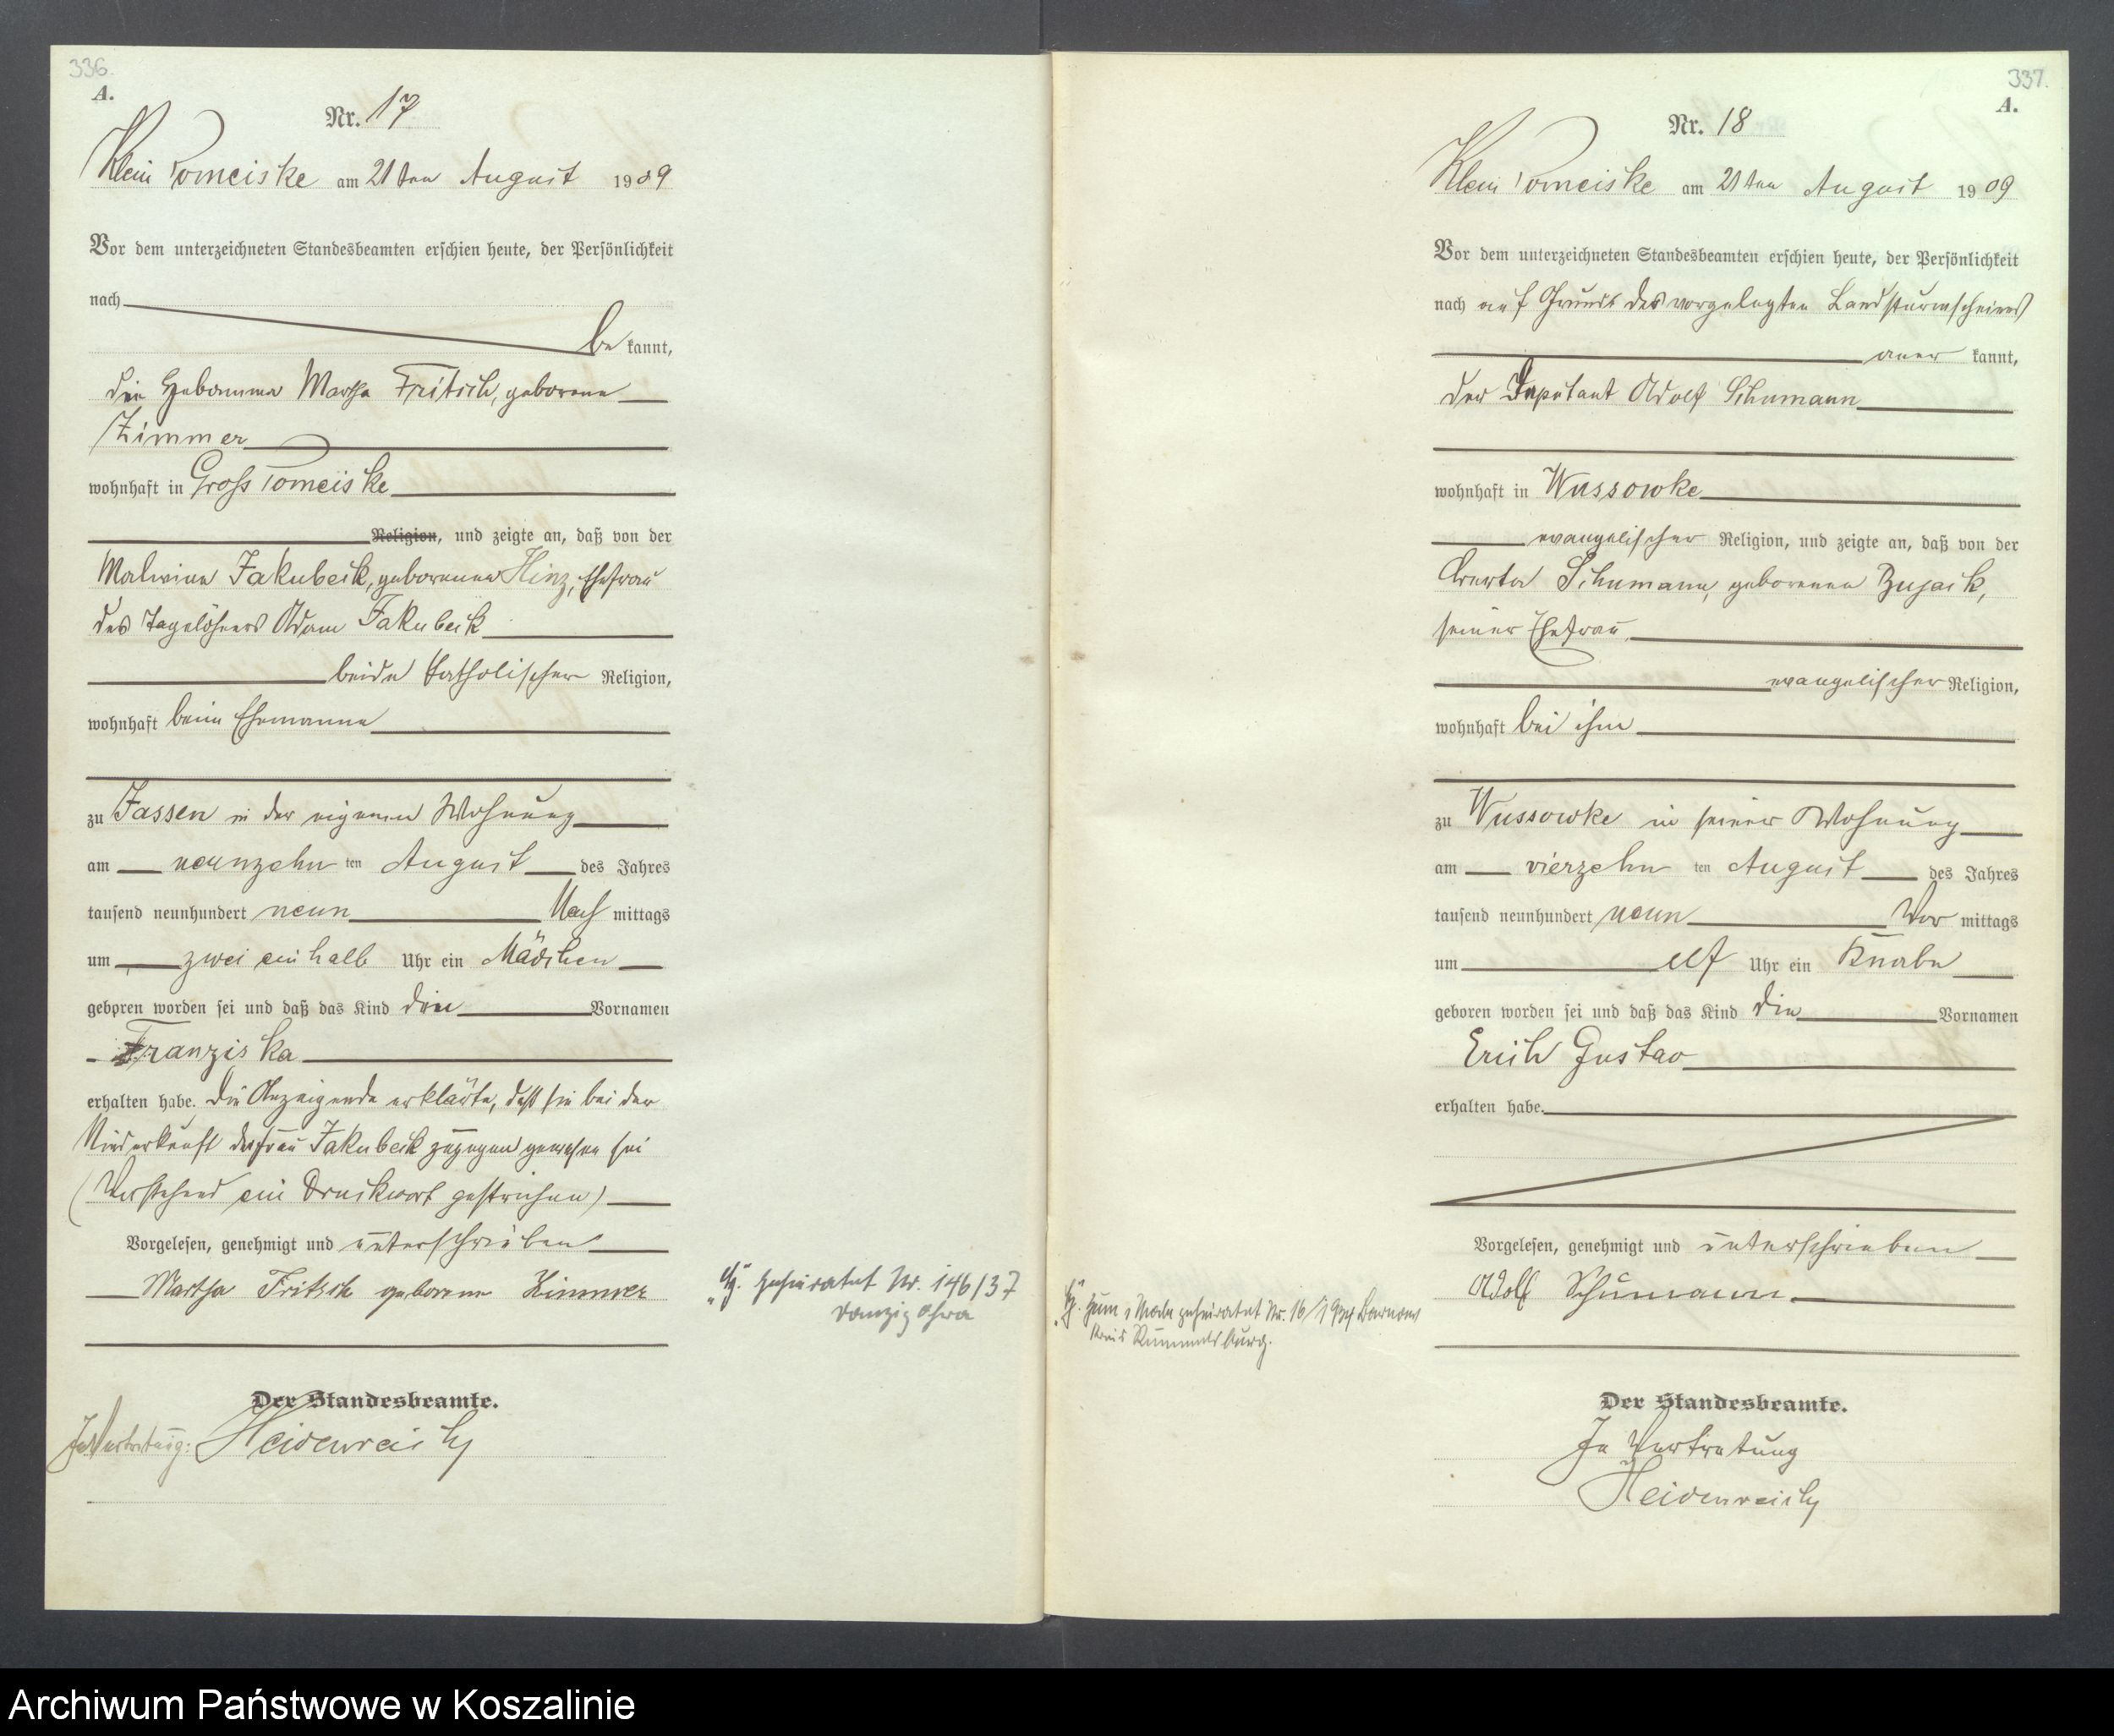 336.
A.
Nr. 17
Klein Pomeiske am 21ten August 1909
Vor dem unterzeichneten Standesbeamten erschien heute, der Persönlichkeit
nach
be kannt,
die Hebamme Martha Fritsch, geborene
Zimmer
wohnhaft in Gross Pomeiske
Religion, und zeigte an, daß von der
Malwine Jakubeik, geborenen Hinz, Ehefrau
des Tagelöhners Adam Jakubeik
beide katholischer Religion,
wohnhaft beim Ehemanne
zu Jassen in der eigenen Wohnung
am neunzehn ten August des Jahres
tausend neunhundert neun Nach mittags
um zwei ein halb Uhr ein Mädchen
geboren worden sei und daß das Kind den Vornamen
Franziska
erhalten habe. Die Anzeigende erklärte, daß sie bei der
Niederkunft der Frau Jakubeik zugegen gewesen sei
(Vorstehend ein Druckwort gestrichen)
Vorgelesen, genehmigt und unterschrieben
Martha Fritsch geborene Zimmer
Der Standesbeamte.
In Vertretung: Heidenreich
geheiratet Nr. 146/37
Danzig Ohra
337.
A.
Nr. 18
Klein Pomeiske am 21ten August 1909
Vor dem unterzeichneten Standesbeamten erschien heute, der Persönlichkeit
nach auf Grund des vorgelegten Landsturmscheines
aner kannt,
der Deputant Adolf Schumann
wohnhaft in Wussowke
evangelischer Religion, und zeigte an, daß von der
Schumann, geborenen Bujack,
seiner Ehefrau,
evangelischer Religion,
wohnhaft bei ihm
zu Wussowke in seiner Wohnung
am vierzehn ten August des Jahres
tausend neunhundert neun Vor mittags
um elf Uhr ein Knabe
geboren worden sei und daß das Kind die Vornamen
Erich Gustav
erhalten habe.
Vorgelesen, genehmigt und unterschrieben
Adolf Schumann
Der Standesbeamte.
In Vertretung
Heidenreich
geheiratet Nr. 16/
Kreis Rummelsburg.
Archiwum Państwowe w Koszalinie